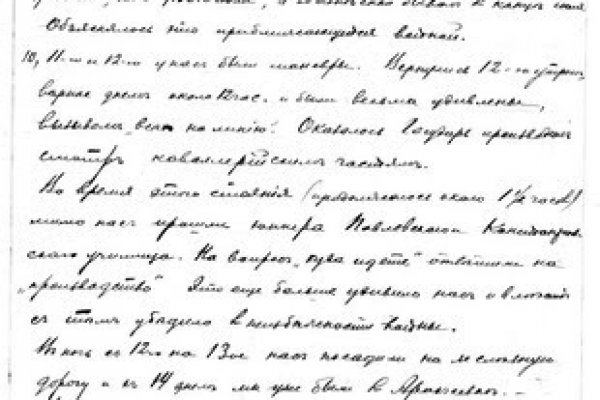 Объяснялось это приближающейся войной.
10, 11-го и 12-го у нас были маневры. Вернулись 12-го утром,
вернее днем около 12 час. и были весьма удивлены,
вызовом „всех на линию“. Оказалось Государь производит
смотр кавалерийским частям.
Во время этого стояния (продолжалось около 1½ часов)
мимо нас прошли юнкера Павловского
ского училища. На вопрос „куда идете“ ответили на
„производство“ Это еще больше удивило нас и
с тем убедило в неизбежности войны.
В ночь с 12-го на 13-ое нас посадили на железную
дорогу и с 14 днем мы уже были в